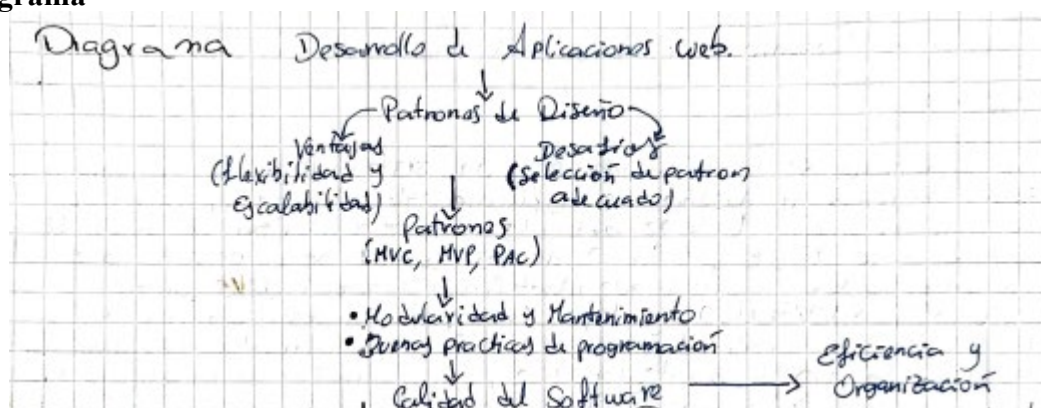 grama
Diagrama Desarrollo de Aplicaciones web.
Patrones de Diseño
Ventajas
(flexibilidad y
Escalabilidad)
Desafios
(selección de patron
adecuado)
Patrones
(MVC, MVP, PAC)
• Modularidad y Mantenimiento
• Buenas practicas de programación
Calidad del Software
Eficiencia y
Organización